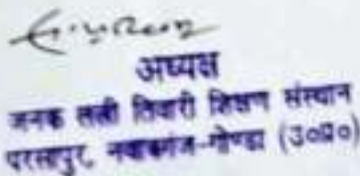 अध्यक्ष
जनक लली तिवारी शिक्षण संस्थान
परसापुर, नवाबगंज-गोण्डा (उ०प्र०)